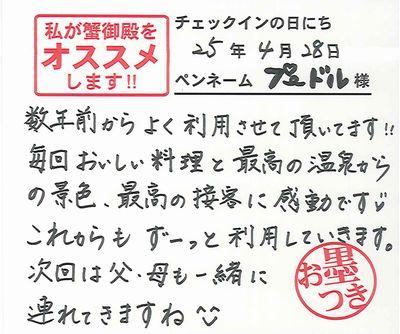 私が蟹御殿を
オススメ
します!!
チェックインの日にち
25年4月28日
ペンネーム プードル 様
数年前からよく利用させて頂いてます!!
毎回おいしい料理と最高の温泉から
の景色、最高の接客に感動です
これからもずーっと利用していきます。
次回は父・母も一緒に
連れてきますね
お墨つき